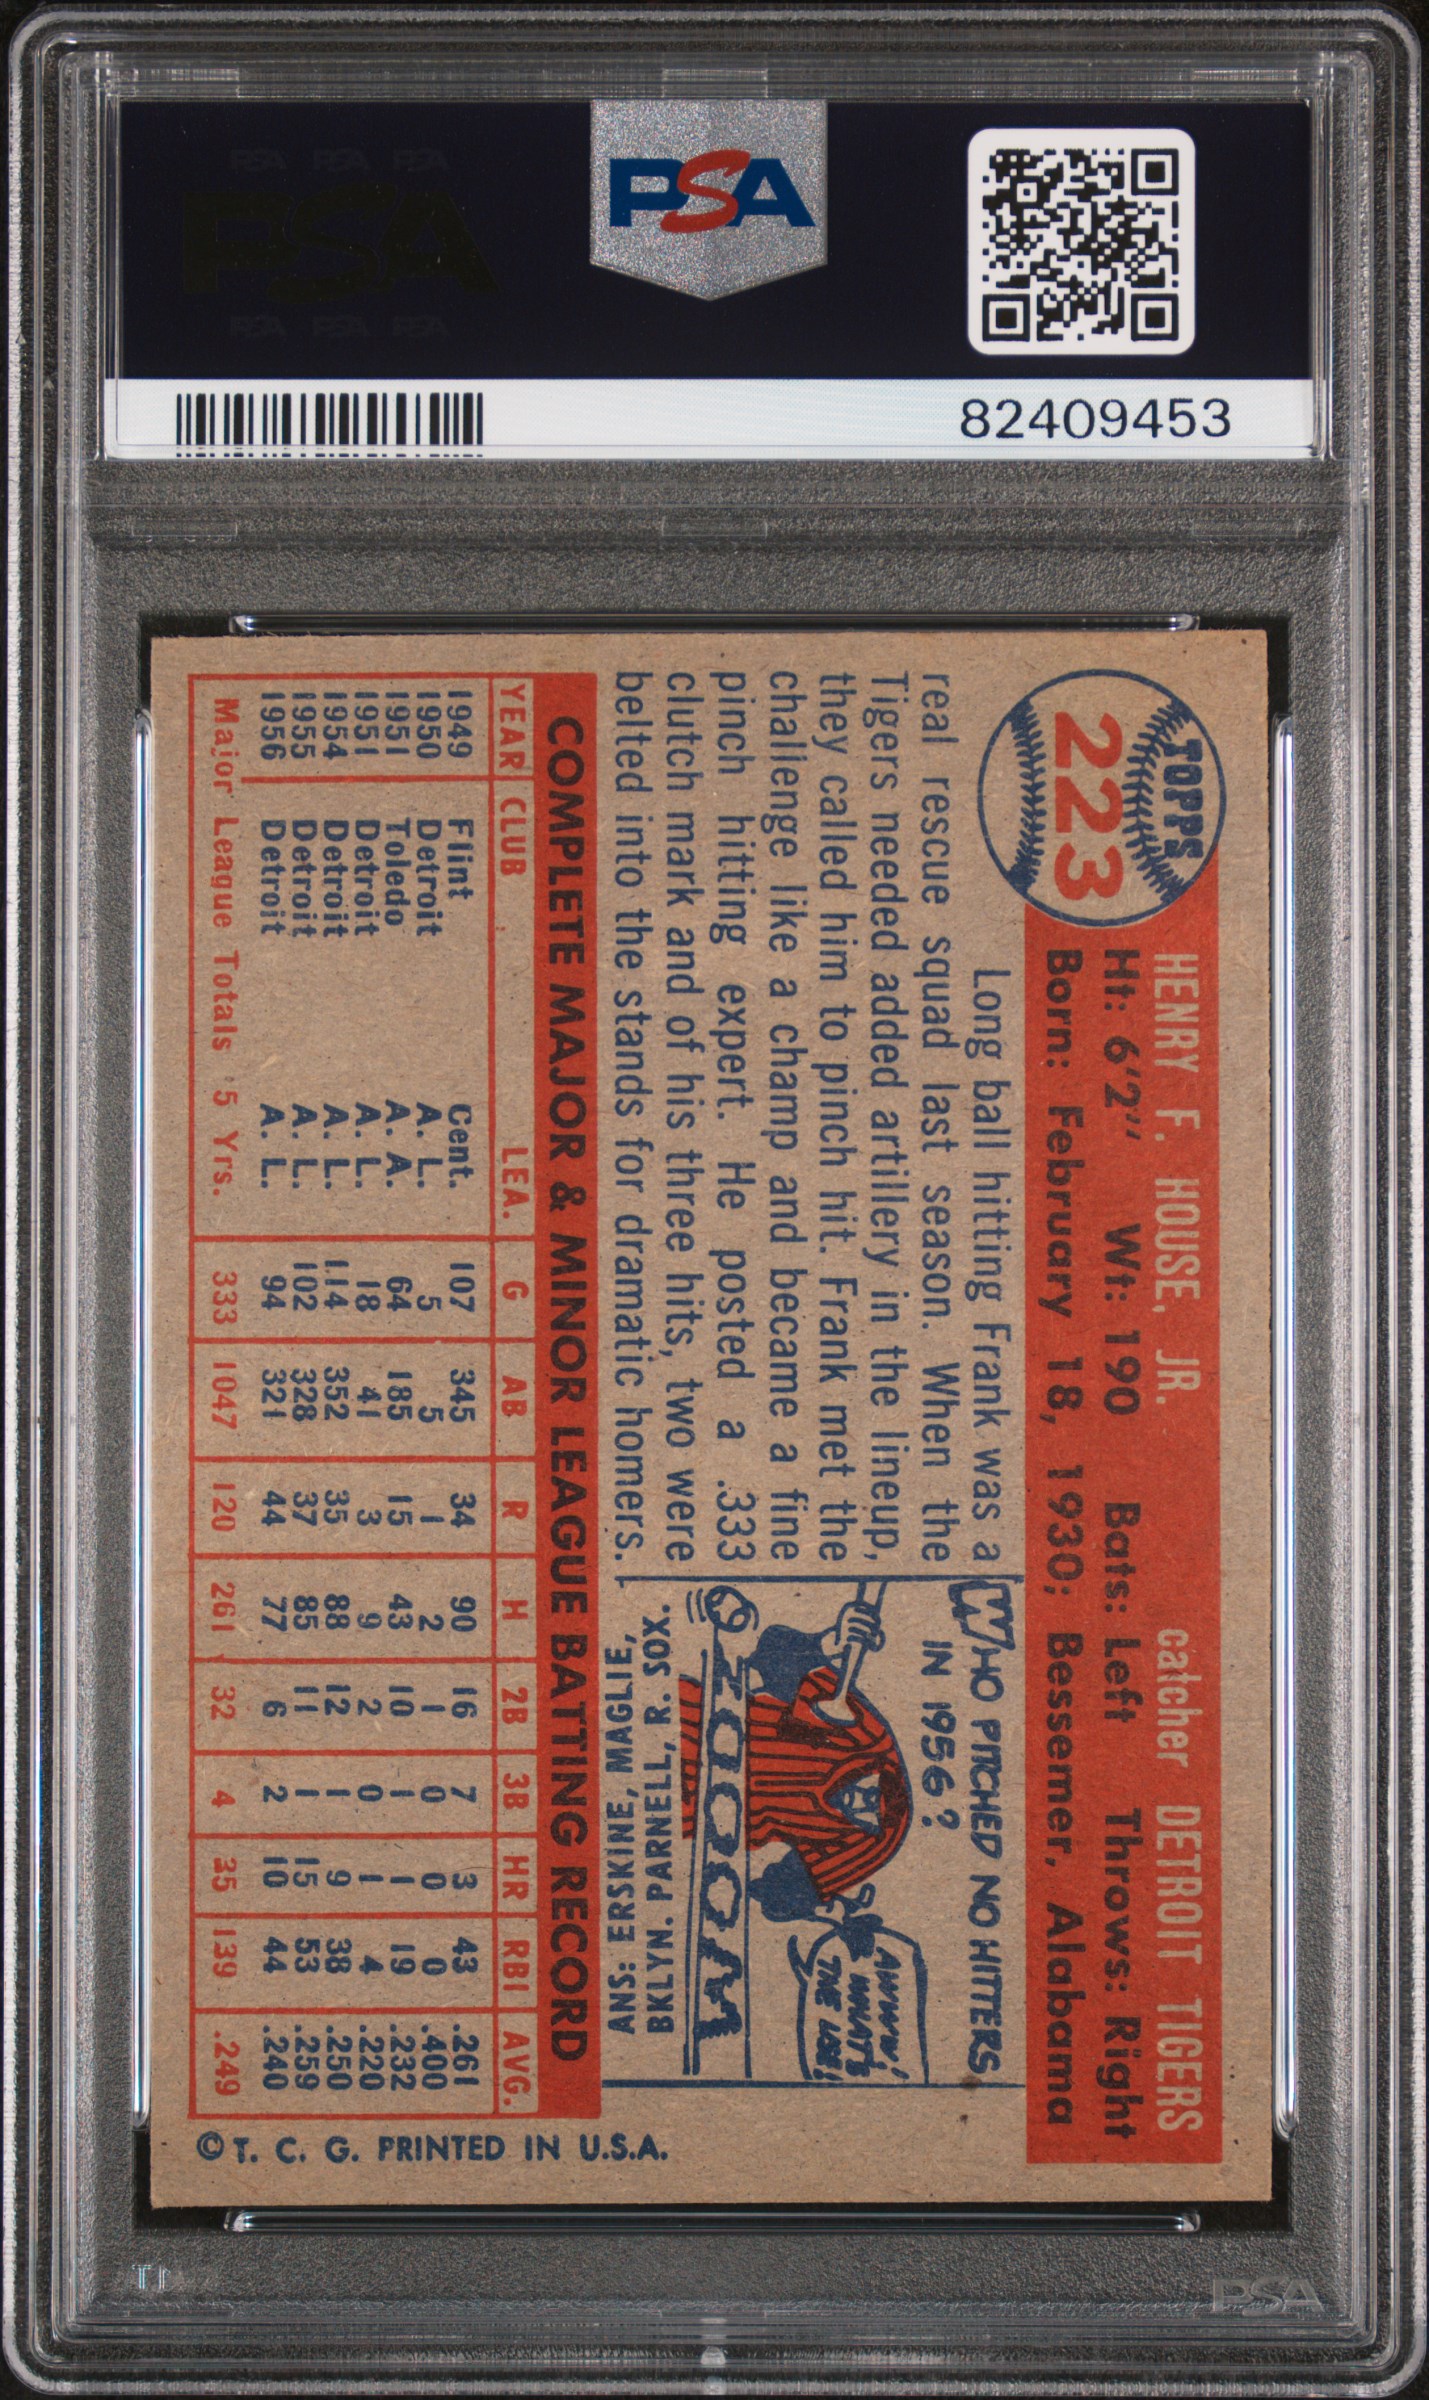 PSA
82409453
TOPPS
223
HENRY F. HOUSE, JR. catcher DETROIT TIGERS
Ht: 6'2" Wt: 190 Bats: Left Throws: Right
Born: February 18, 1930; Bessemer, Alabama
Long ball hitting Frank was a
real rescue squad last season. When the
Tigers needed added artillery in the lineup,
they called him to pinch hit. Frank met the
challenge like a champ and became a fine
pinch hitting expert. He posted a .333
clutch mark and of his three hits, two were
belted into the stands for dramatic homers.
WHO PITCHED NO HITTERS
IN 1956?
AWWW!
WHAT'S
THE USE!
ZOOOOM
ANS: ERSKINE, MAGLIE,
BKLYN. PARNELL, R. SOX.
COMPLETE MAJOR & MINOR LEAGUE BATTING RECORD
YEAR CLUB LEA. G AB R H 2B 3B HR RBI AVG.
1949 Flint Cent. 107 345 34 90 16 7 3 43 .261
1950 Detroit A. L. 5 5 1 2 1 0 0 0 .400
1951 Toledo A. A. 64 185 15 43 10 1 1 19 .232
1951 Detroit A. L. 18 41 3 9 2 0 1 4 .220
1954 Detroit A. L. 114 352 35 88 12 1 9 38 .250
1955 Detroit A. L. 102 328 37 85 11 1 15 53 .259
1956 Detroit A. L. 94 321 44 77 6 2 10 44 .240
Major League Totals 5 Yrs. 333 1047 120 261 32 4 35 139 .249
© T. C. G. PRINTED IN U.S.A.
PSA